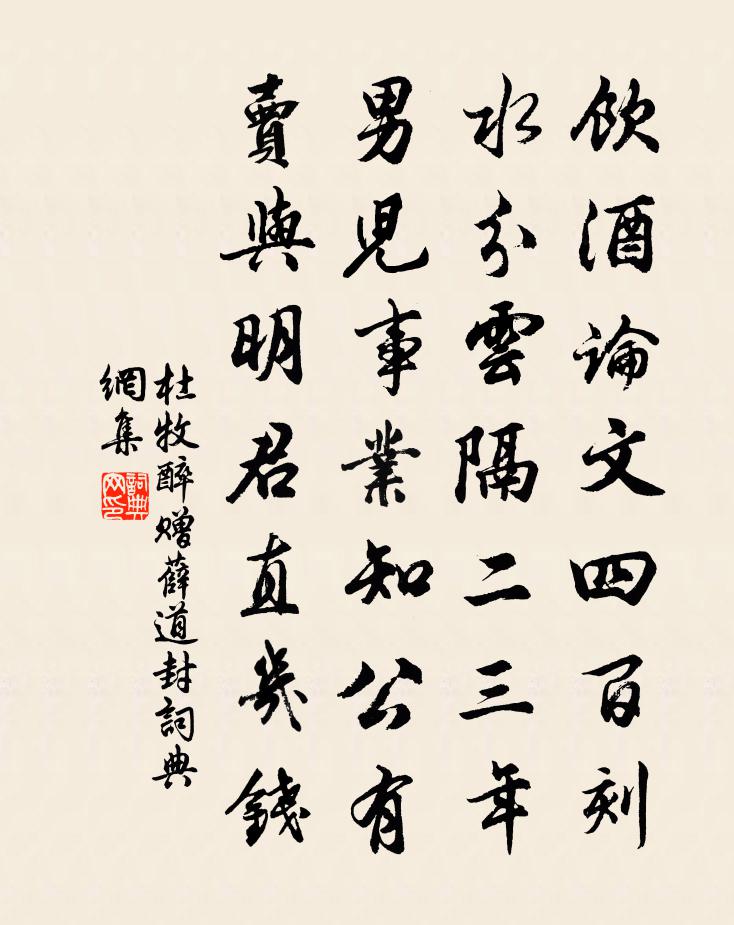 飲酒論文四百刻
水分雲隔二三年
男兒事業知公有
賣與明君直幾錢
杜牧醉贈薛道封詞典
網集
詞典网印